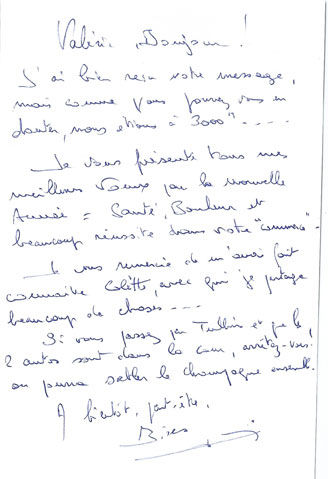 Valérie, Bonjour !
J'ai bien reçu votre message,
mais comme vous pouvez vous en
douter, nous étions à 3000m - - - -
Je vous présente tous mes
meilleurs Vœux pour la nouvelle
Année = Santé, Bonheur et
beaucoup réussite dans votre "
Je vous remercie de m'avoir fait
connaître Colette, avec qui je partage
beaucoup de choses - - -
Si vous passez par Tullins et que les
2 autos sont dans la cour, arrêtez-vous.
on pourra sabler le champagne ensemble.
A bientôt, peut-être,
Bises